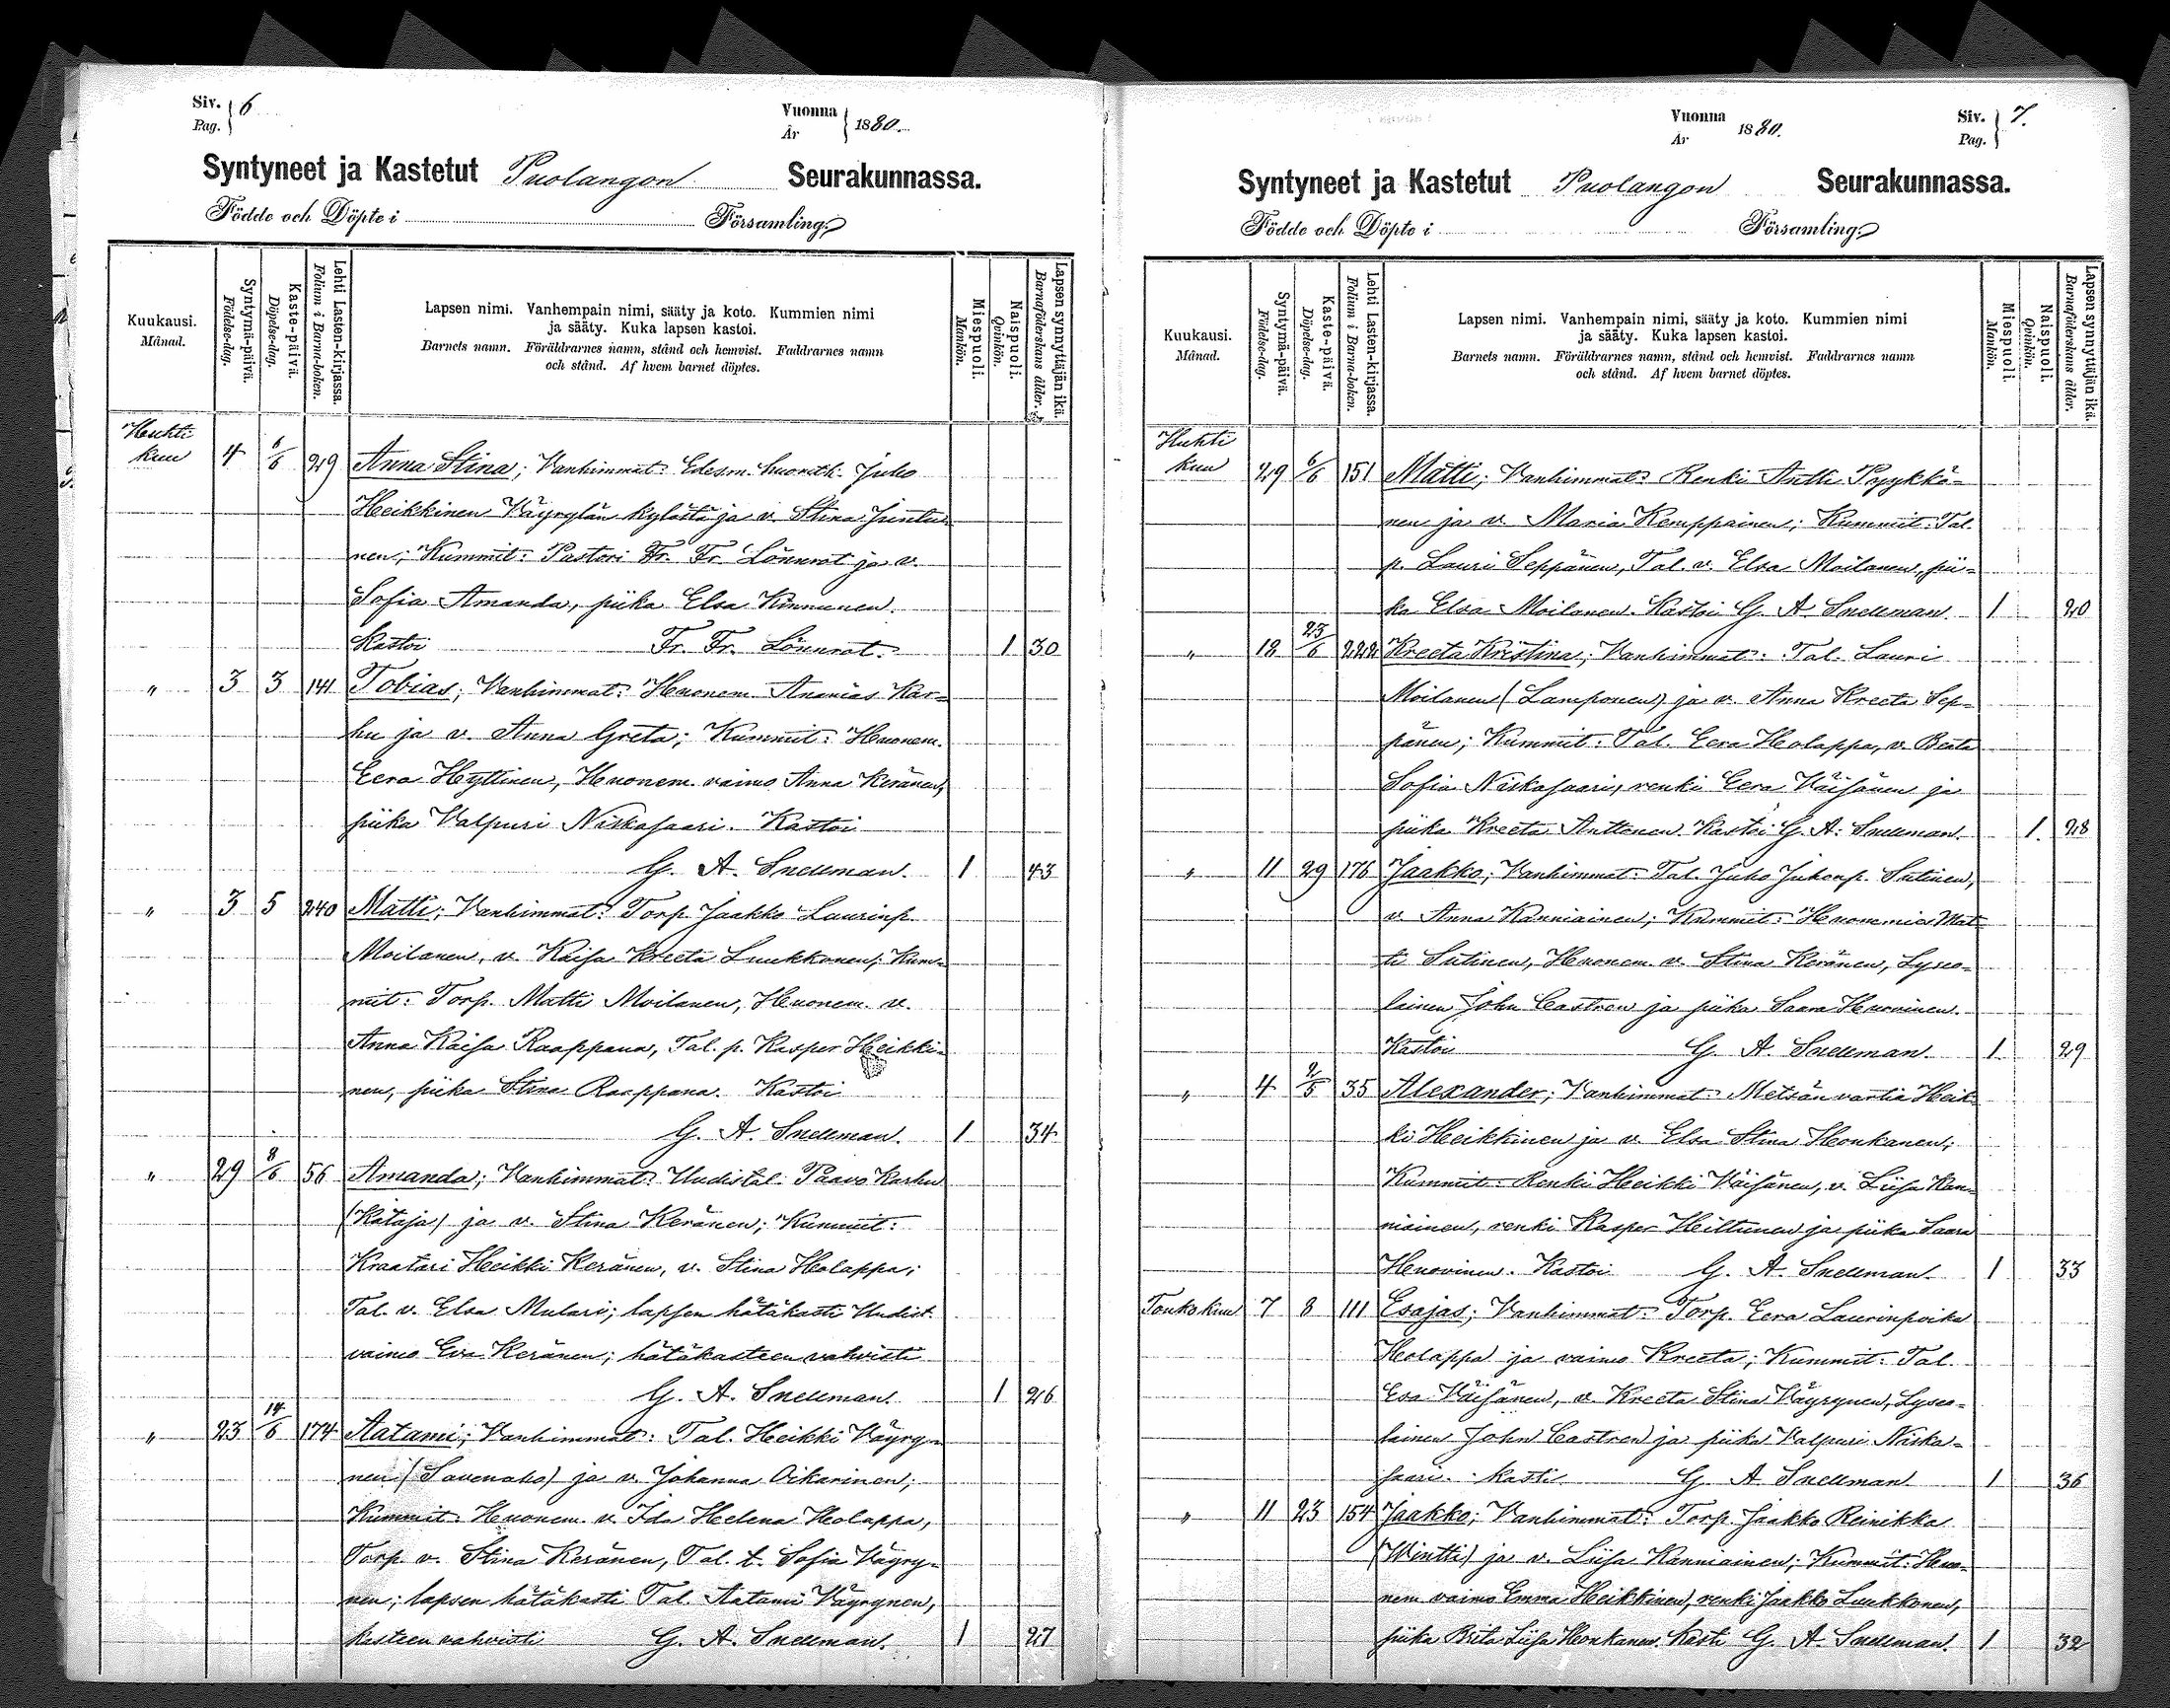 Siv. 6
Pag.
Vuonna
År 1880.
Syntyneet ja Kastetut Puolangon Seurakunnassa.
Födde och Döpte i Församling.
Kuukausi.
Månad.
Syntymä-päivä.
Födelse-dag.
Kaste-päivä.
Döpelse-dag.
Lehti Lasten-kirjassa.
Folium i Barna-boken.
Lapsen nimi. Vanhempain nimi, sääty ja koto. Kummien nimi
ja sääty. Kuka lapsen kastoi.
Barnets namn. Föräldrarnes namn, stånd och hemvist. Faddrarnes namn
och stånd. Af hvem barnet döptes.
Miespuoli.
Mankön.
Naispuoli.
Qvinkön.
Lapsen synnyttäjän ikä.
Barnaföderskans ålder.
Huhti
kuu 4 6/6 29 Anna Stina; Vanhimmat: Edesm. huonek. Juho
Heikkinen Väyrylän kylästä ja v. Stina Juntu
nen; Kummit: Pastori Fr. Fr. Lönnrot ja v.
Sofia Amanda, piika Elsa Kinnunen.
Kastoi Fr. Fr. Lönnrot. 1 30
" 3 3 141 Tobias; Vanhimmat: Huonem. Ananias Kar-
hu ja v. Anna Greta; Kummit: Huonem.
Eera Hyttinen, Huonem. vaimo Anna Keränen,
piika Valpuri Niskasaari. Kastoi
G. A. Snellman. 1 43
" 3 5 240 Matti; Vanhimmat: Torp. Jaakko Laurinp.
Moilanen, v. Kaisa Kreeta Luukkonen; Kum-
mit: Torp. Matti Moilanen, Huonem. v.
Anna Kaisa Raappana, Tal. p. Kasper Heikki-
nen, piika Stina Raappana. Kastoi
G. A. Snellman. 1 34
" 29 8/6 56 Amanda; Vanhimmat: Uudistal. Paavo Karhu
(Kataja) ja v. Stina Keränen; Kummit:
Kraatari Heikki Keränen, v. Stina Holappa;
Tal. v. Elsa Mulari; lapsen hätäkasti Uudist.
vaimo Eva Keränen; hätäkasteen vahvisti
G. A. Snellman. 1 26
" 23 14/6 174 Aatami; Vanhimmat: Tal. Heikki Väyry-
nen (Savenaho) ja v. Johanna Oikarinen;
Kummit: Huonem. v. Ida Helena Holappa,
Torp. v. Stina Keränen, Tal. t. Sofia Väyry-
nen; lapsen hätäkasti Tal. Aatami Väyrynen,
kasteen vahvisti G. A. Snellman. 1 27
Vuonna
År 1880.
Siv. 7.
Pag.
Syntyneet ja Kastetut Puolangon Seurakunnassa.
Födde och Döpte i Församling.
Kuukausi.
Månad.
Syntymä-päivä.
Födelse-dag.
Kaste-päivä.
Döpelse-dag.
Lehti Lasten-kirjassa.
Folium i Barna-boken.
Lapsen nimi. Vanhempain nimi, sääty ja koto. Kummien nimi
ja sääty. Kuka lapsen kastoi.
Barnets namn. Föräldrarnes namn, stånd och hemvist. Faddrarnes namn
och stånd. Af hvem barnet döptes.
Miespuoli.
Mankön.
Naispuoli.
Qvinkön.
Lapsen synnyttäjän ikä.
Barnaföderskans ålder.
Huhti
kuu 29 6/6 151 Matti; Vanhimmat: Renki Antti Pyykkö-
nen ja v. Maria Kemppainen; Kummit: Tal.
p. Lauri Seppänen, Tal. v. Elsa Moilanen, pii-
ka Elsa Moilanen. Kastoi G. A. Snellman. 1 20
" 18 23/6 222 Kreeta Kristina; Vanhimmat: Tal. Lauri
Moilanen (Lamponen) ja v. Anna Kreeta Sep-
pänen; Kummit: Tal. Eera Holappa, v. Beata
Sofia Niskasaari, renki Eera Väisänen ja
piika Kreeta Anttonen. Kastoi G. A. Snellman. 1. 28
" 11 29 176 Jaakko; Vanhimmat: Tal. Juho Juhonp. Sutinen,
v. Anna Kanniainen; Kummit: Huonemies Mat-
ti Sutinen, Huonem. v. Stina Keränen, Lyseo-
lainen John Castren ja piika Saara Huovinen.
Kastoi G. A. Snellman. 1 29
" 4 2/5 35 Alexander; Vanhimmat: Metsän vartia Heik-
ki Heikkinen ja v. Elsa Stina Honkanen;
Kummit: Renki Heikki Väisänen, v. Liisa Kan-
niainen, renki Kasper Heiltunen ja piika Saara
Huovinen. Kastoi G. A. Snellman. 1 33
Toukokuu 7 8 111 Esajas; Vanhimmat: Torp. Eera Laurinpoika
Holappa ja vaimo Kreeta; Kummit: Tal.
Esa Väisänen, v. Kreeta Stina Väyrynen, Lyseo-
lainen John Castren ja piika Valpuri Niska-
saari. Kasti G. A. Snellman. 1 36
" 11 23 154 Jaakko; Vanhimmat: Torp. Jaakko Reinikka
(Wintti) ja v. Liisa Kanniainen; Kummit: Huo-
nem. vaimo Emma Heikkinen, renki Jaakko Luukkonen,
piika Brita Liisa Honkanen. Kasti G. A. Snellman. 1 32